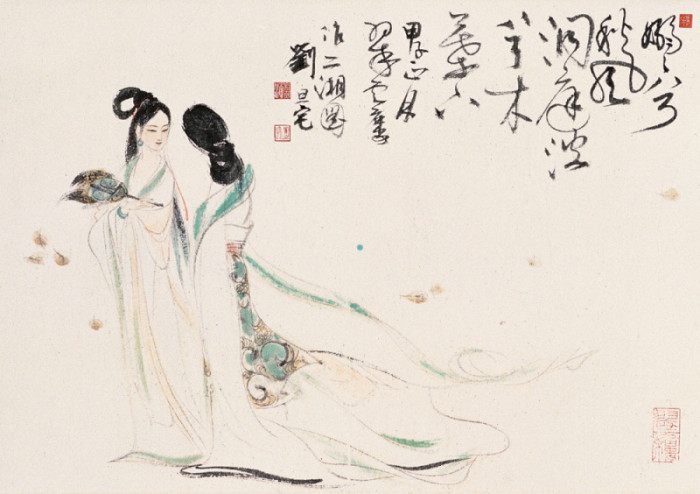 嫋〻兮
秋風
洞庭波
兮木
葉下
甲子正月
作二湘圖
劉旦宅